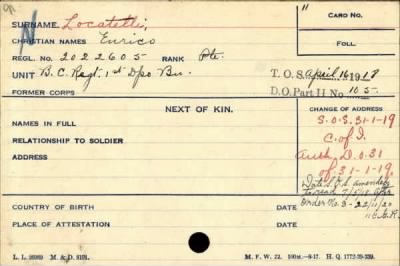 SURNAME Locatelli, CARD NO.
CHRISTIAN NAMES Enrico
FOLL.
REGL. NO. 2022605 RANK Pte.
UNIT B.C. Regt. 1st Dpo Bn. T.O.S. April 16 1918
FORMER CORPS D.O. Part II No. 105
NEXT OF KIN. CHANGE OF ADDRESS
NAMES IN FULL S.O.S. 31-1-19
RELATIONSHIP TO SOLDIER C. of I.
ADDRESS Auth. D.O. 31
of 31-1-19.
Date S.O.S. amended
to read 7/5/18
COUNTRY OF BIRTH Order No. 3-22/11/20
PLACE OF ATTESTATION
L. L. 26989 M. & D. 8191. M. F. W. 22. H. Q. 1772-39-339.